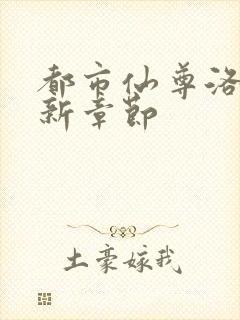 都市仙尊洛
新章節
土豪嫁我